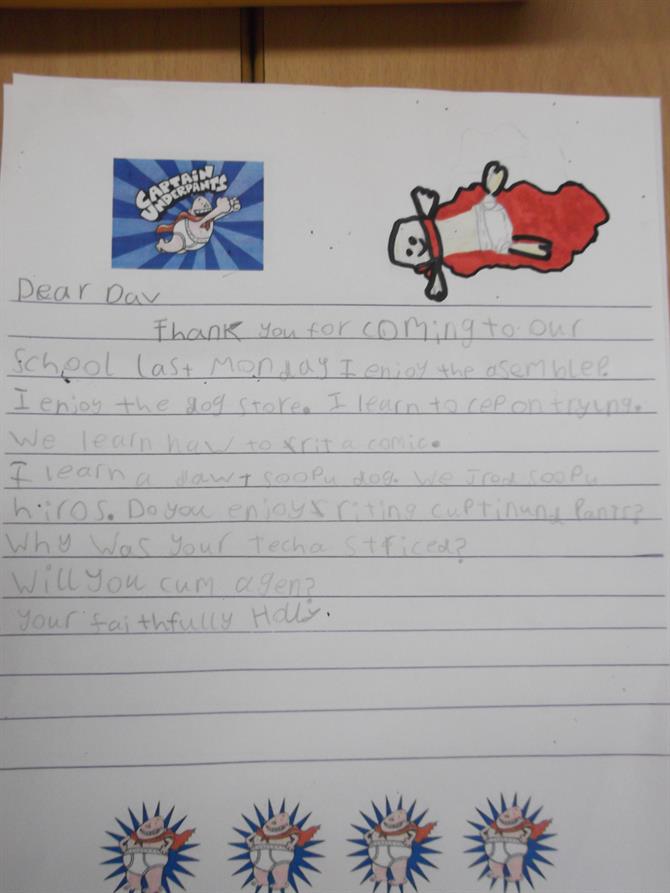 CAPTAIN
UNDERPANTS
Dear Dav
Thank you for coming to our
School last Monday I enjoy the asemblep.
I enjoy the dog store. I learn to cep on trying.
We learn haw to rrit a comic.
I learn a dawt soopu dog. We Jrod soopu
hiros. Do you enjoy rriting cuptinund Pants?
Why Was your techa strficed?
Will you cum agen?
your faithfully Holly.